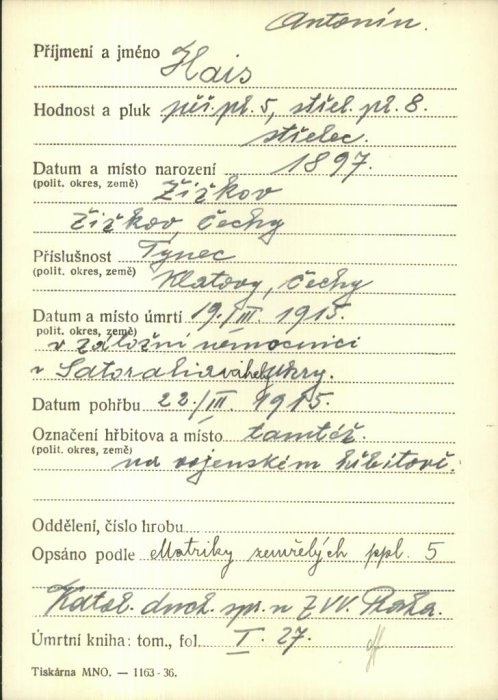 Antonín.
Příjmení a jméno Hais
Hodnost a pluk pěš. pl. 5, střel. pl. 8.
střelec.
Datum a místo narození 1897.
(polit. okres, země) Žižkov
Žižkov, Čechy
Příslušnost Tynec
(polit. okres, země) Klatovy, Čechy
Datum a místo úmrtí 19./III. 1915.
polit. okres, země)
v záložní nemocnici
v Satoraljaujhely Uhry.
Datum pohřbu 22./III. 1915.
Označení hřbitova a místo tamtéž
(polit. okres, země)
na vojenském hřbitově.
Oddělení, číslo hrobu
Opsáno podle Matriky zemřelých ppl. 5
Katol. duch. spr. u ZVV. Praha.
Úmrtní kniha: tom., fol. I. 27.
Tiskárna MNO. — 1163-36.